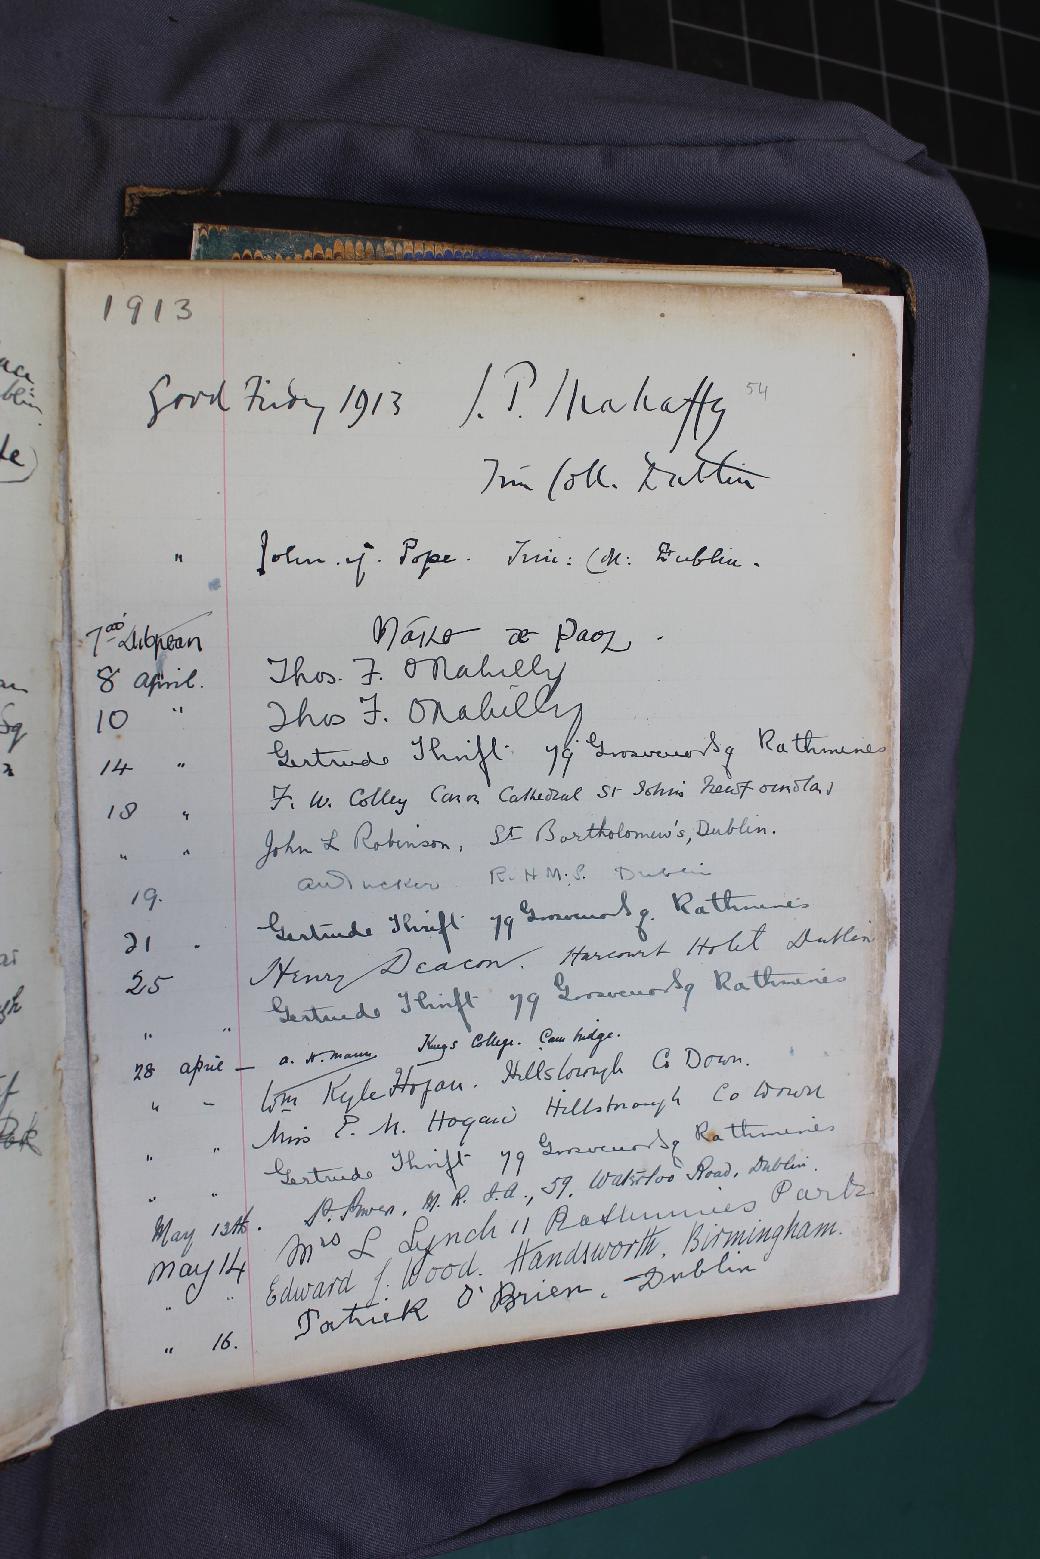 1913
Good Friday 1913 J. P. Mahaffy 54
Trin Coll. Dublin
" John . J. Pope. Trin: Coll: Dublin.
7
8 April. Thos. F. O'Rahilly
10 " Thos F. O'Rahilly
14 " Gertrude Thrift 79 Grosvenor Sq Rathmines
18 " F. W. Colley Canon Cathedral St John's Newfoundland
" " John L Robinson, St Bartholomew's, Dublin.
19. R.H.M.S. Dublin
21 " Gertrude Thrift 79 Grosvenor Sq. Rathmines
25 Henry Deacon. Harcourt Hotel Dublin
" " Gertrude Thrift 79 Grosvenor Sq Rathmines
28 April — A. H. Mann King's College. Cambridge.
" — Wm Kyle Hogan. Hillsborough Co Down.
" " Miss E. M. Hogan Hillsborough Co Down
" " Gertrude Thrift 79 Grosvenor Sq Rathmines
May 13th. M. R. I. A., 59, Waterloo Road, Dublin.
May 14 Mrs L Lynch 11 Rathmines Park
" " Edward J. Wood. Handsworth. Birmingham.
" 16. Patrick O'Brien. Dublin